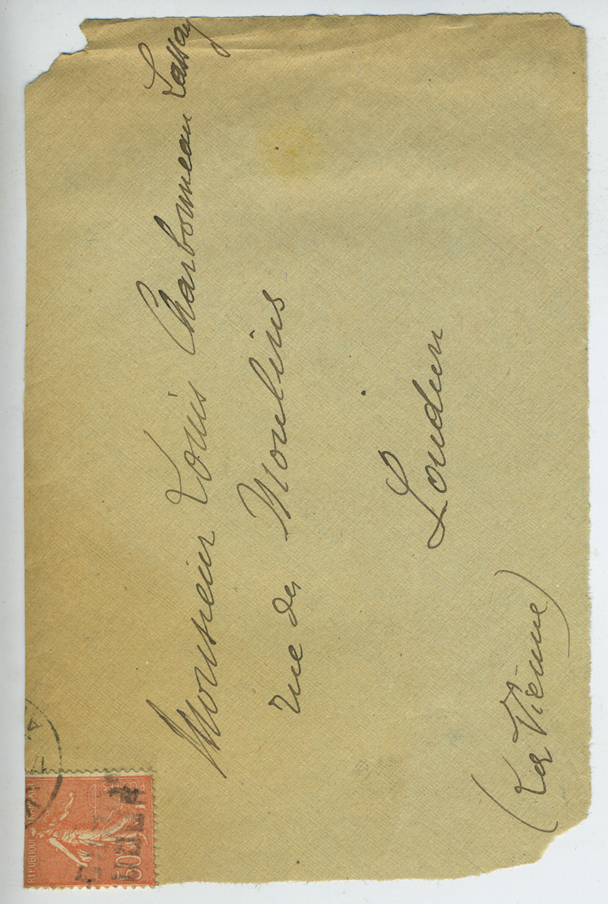 Monsieur Louis Charbonneau Lassay
rue des Moulins
Loudun
(La Vienne)
REPUBLIQUE
50